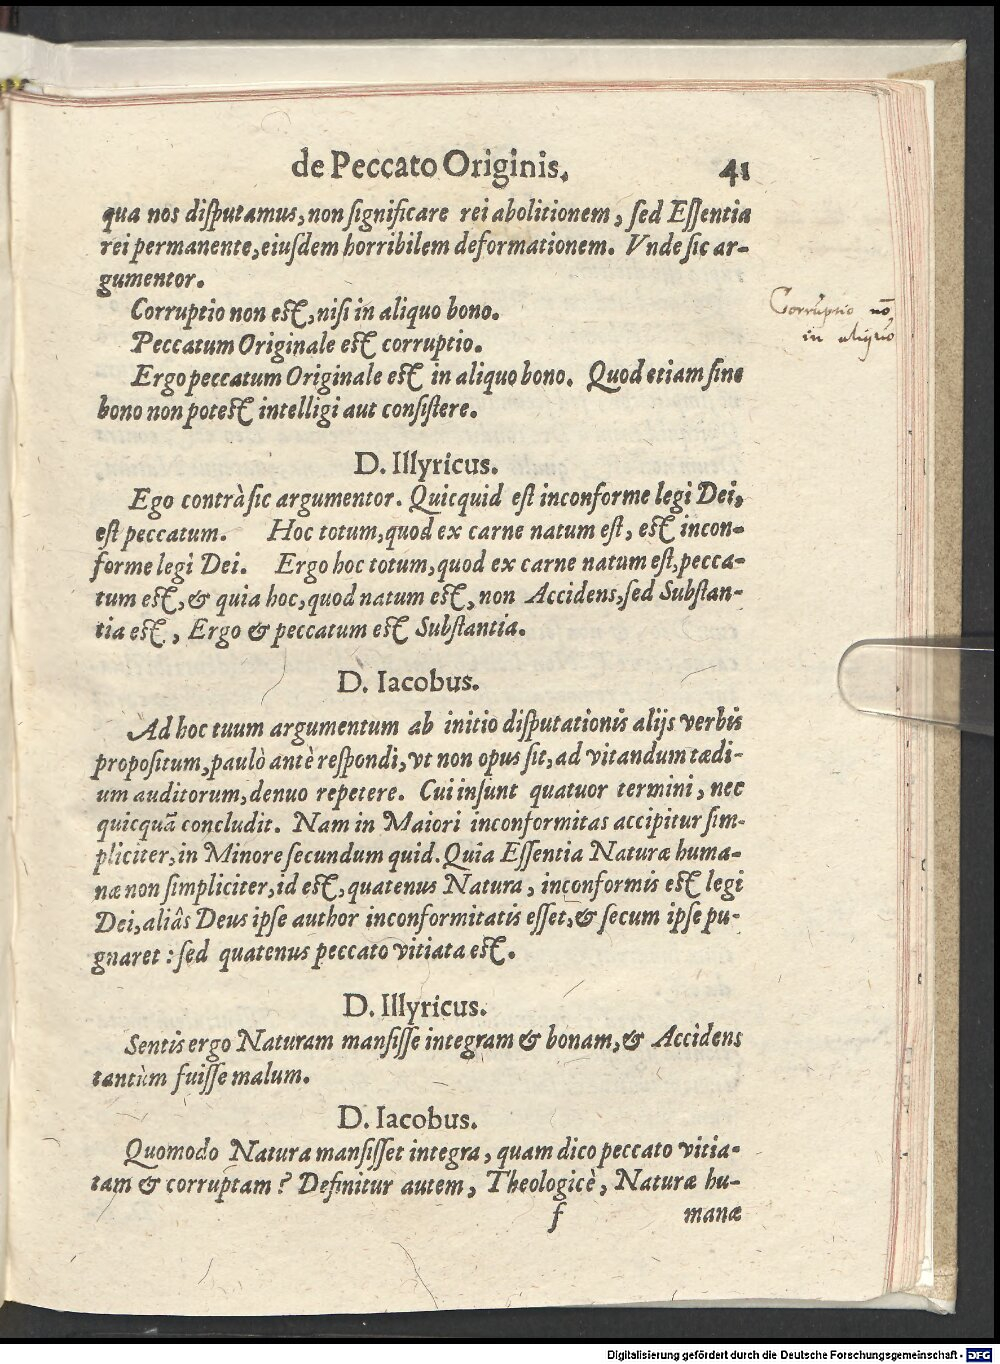 de Peccato Originis. 41
qua nos disputamus, non significare rei abolitionem, sed Essentia
rei permanente, eiusdem horribilem deformationem. Vnde sic ar-
gumentor.
Corruptio non est, nisi in aliquo bono.
Peccatum Originale est corruptio.
Ergo peccatum Originale est in aliquo bono. Quod etiam sine
bono non potest intelligi aut consistere.
Corruptio nō
in aliquo
D. Illyricus.
Ego contrà sic argumentor. Quicquid est inconforme legi Dei,
est peccatum. Hoc totum, quod ex carne natum est, est incon-
forme legi Dei. Ergo hoc totum, quod ex carne natum est, pecca-
tum est, & quia hoc, quod natum est, non Accidens, sed Substan-
tia est, Ergo & peccatum est Substantia.
D. Iacobus.
Ad hoc tuum argumentum ab initio disputationis alijs verbis
propositum, paulò antè respondi, vt non opus sit, ad vitandum tædi-
um auditorum, denuo repetere. Cui insunt quatuor termini, nec
quicquã concludit. Nam in Maiori inconformitas accipitur sim-
pliciter, in Minore secundum quid. Quia Essentia Naturæ huma-
næ non simpliciter, id est, quatenus Natura, inconformis est legi
Dei, aliâs Deus ipse author inconformitatis esset, & secum ipse pu-
gnaret : sed quatenus peccato vitiata est.
D. Illyricus.
Sentis ergo Naturam mansisse integram & bonam, & Accidens
tantùm fuisse malum.
D. Iacobus.
Quomodo Natura mansisset integra, quam dico peccato vitia-
tam & corruptam? Definitur autem, Theologicè, Naturæ hu-
f manæ
Digitalisierung gefördert durch die Deutsche Forschungsgemeinschaft - DFG